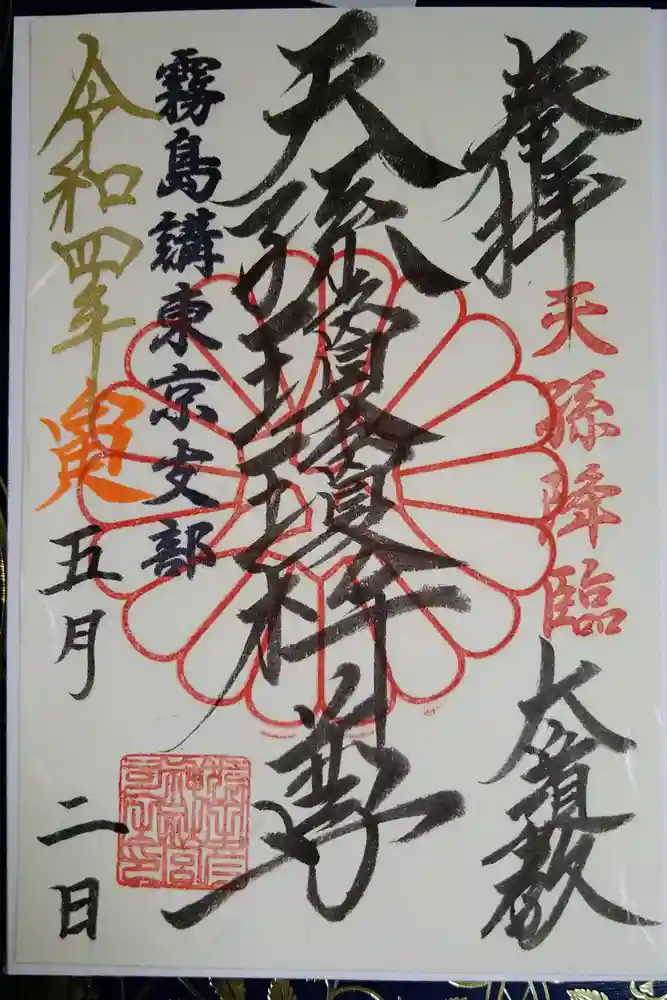 奉拝
天孫降臨
大道教
天孫瓊瓊杵尊
霧島講東京支部
令和四年寅五月二日